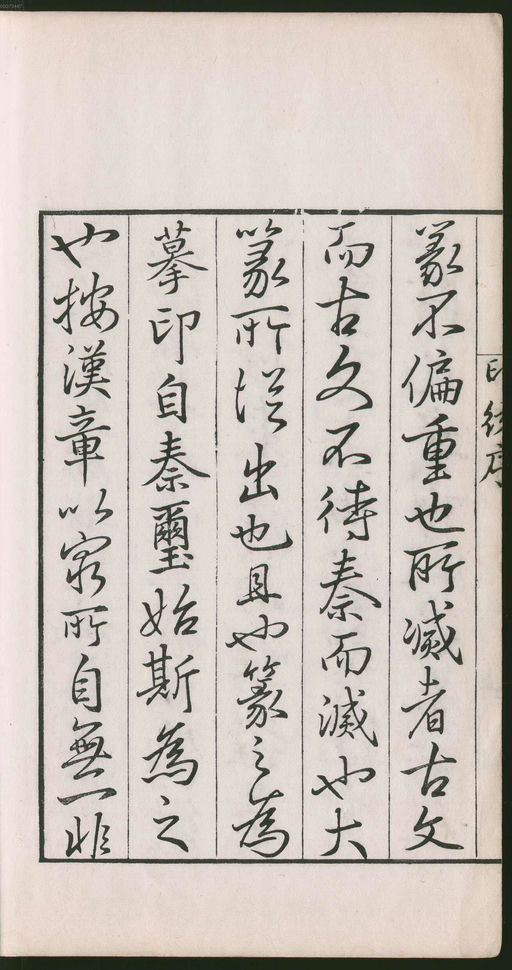 印統序
篆不偏重也所滅者古文
而古文不待秦而滅也大
篆所從出也且也篆之為
摹印自秦璽始斯為之
也按漢章以窮所自無一非